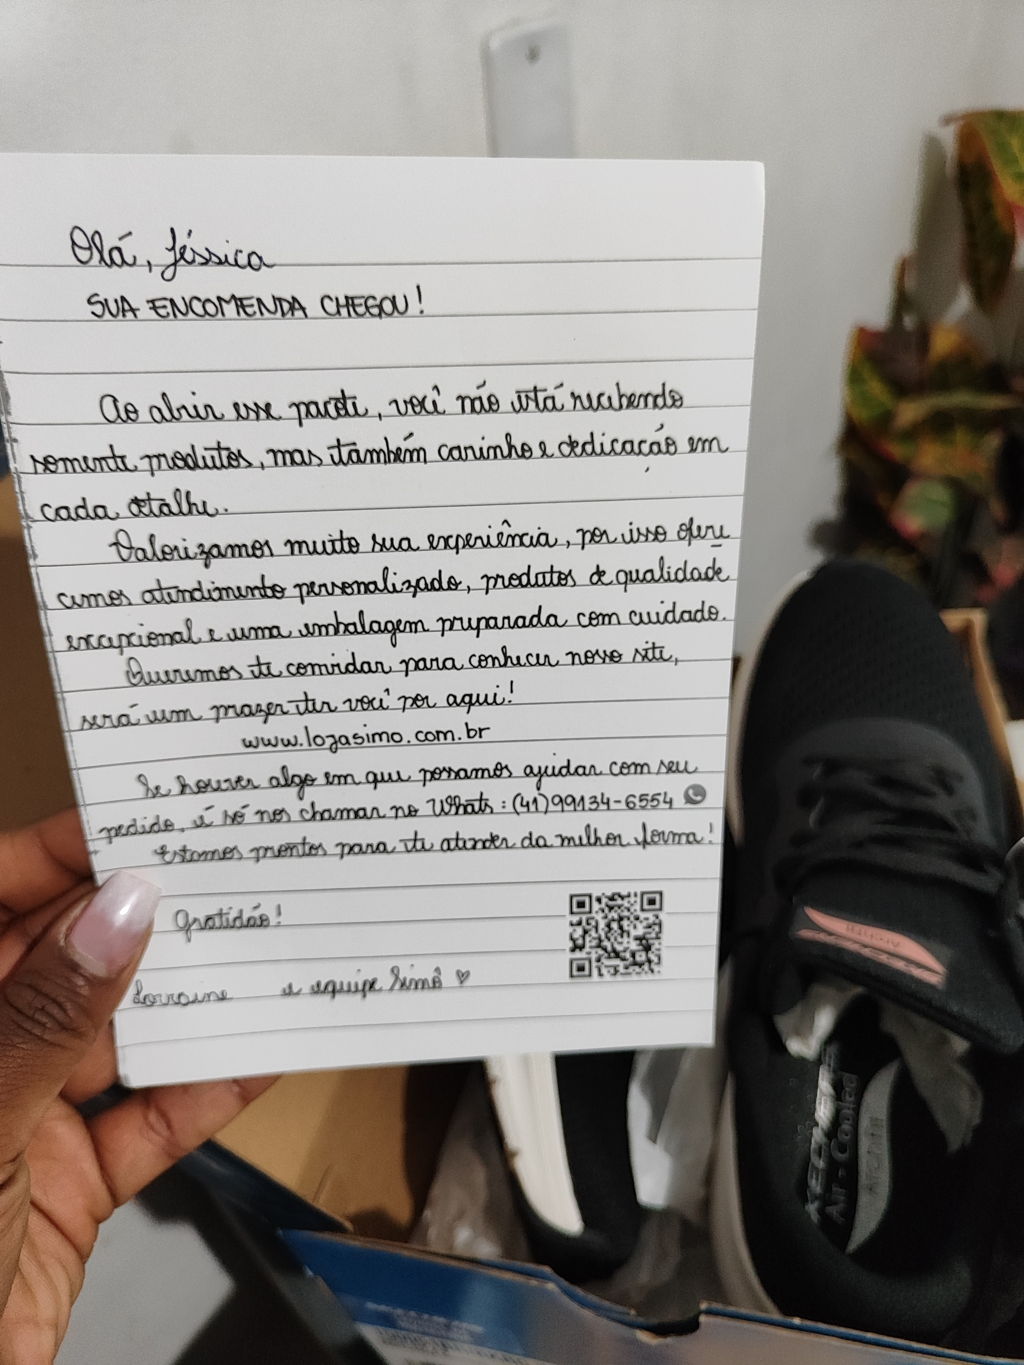 Olá, Jéssica
SUA ENCOMENDA CHEGOU!
Ao abrir esse pacote, você não está recebendo
somente produtos, mas também carinho e dedicação em
cada detalhe.
Valorizamos muito sua experiência, por isso ofere
cemos atendimento personalizado, produtos de qualidade
excepcional e uma embalagem preparada com cuidado.
Queremos te convidar para conhecer nosso site,
será um prazer ter você por aqui!
www.lojasimo.com.br
Se houver algo em que possamos ajudar com seu
pedido, é só nos chamar no Whats: (41)99134-6554
Estamos prontos para te atender da melhor forma!
Gratidão!
Lorraine e equipe Simô ♡
Arch Fit
SKECHERS
Air-Cooled
Arch Fit